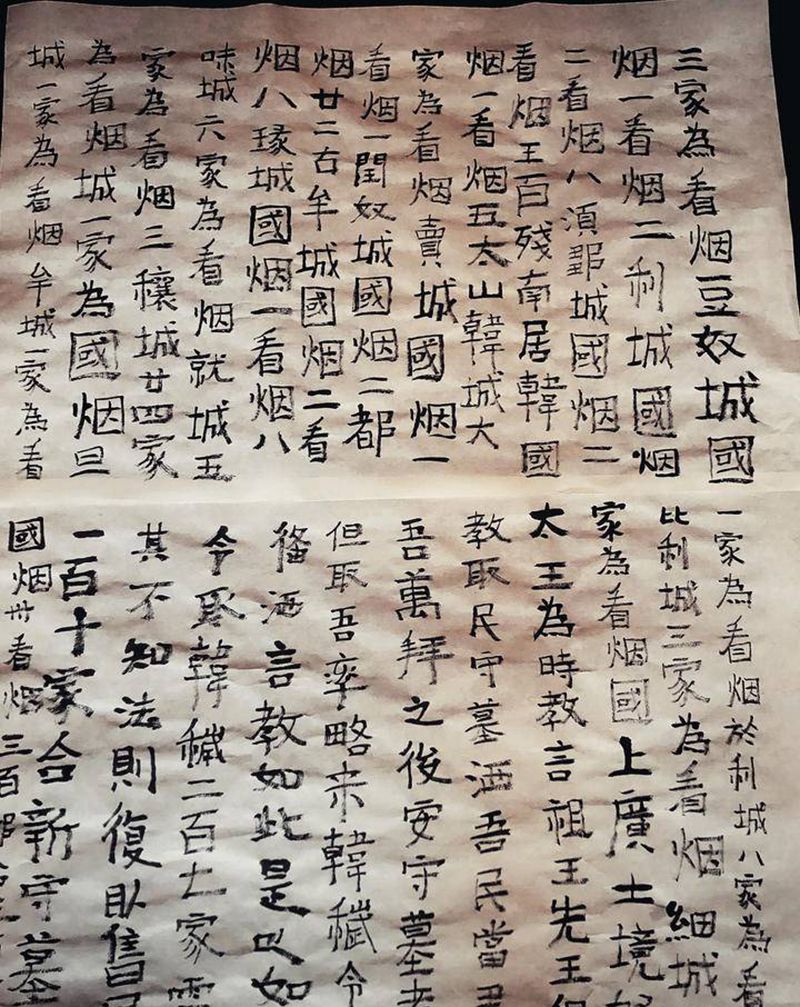 三家為看烟豆奴城國
烟一看烟二利城國烟
二看烟八湏鄒城國烟二
看烟王百殘南居韓國
烟一看烟五太山韓城六
家為看烟賣城國烟一
看烟一閏奴城國烟二都
烟廿二古牟城國烟二看
烟八瑑城國烟一看烟八
味城六家為看烟就城五
家為看烟三穰城廿四家
為看烟城一家為國烟旦
城一家為看烟牟城一家為看
一家為看烟於利城八家為看
比利城三家為看烟細城
家為看烟國上廣土境
太王為時教言祖王先王
教取民守墓洒吾民當
吾萬拜之後安守墓者
但取吾率略来韓穢令
俻洒言教如此是以如
令取韓穢二百廿家
其不知法則復取舊
一百十家合新守墓
國烟卅看烟三百都